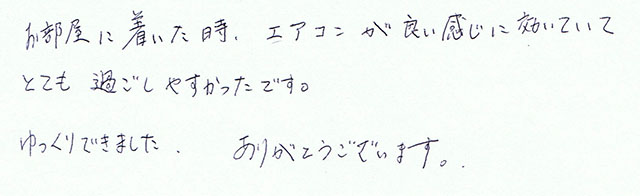 お部屋に着いた時、エアコンが良い感じに効いていて
とても過ごしやすかったです。
ゆっくりできました. ありがとうございます。.